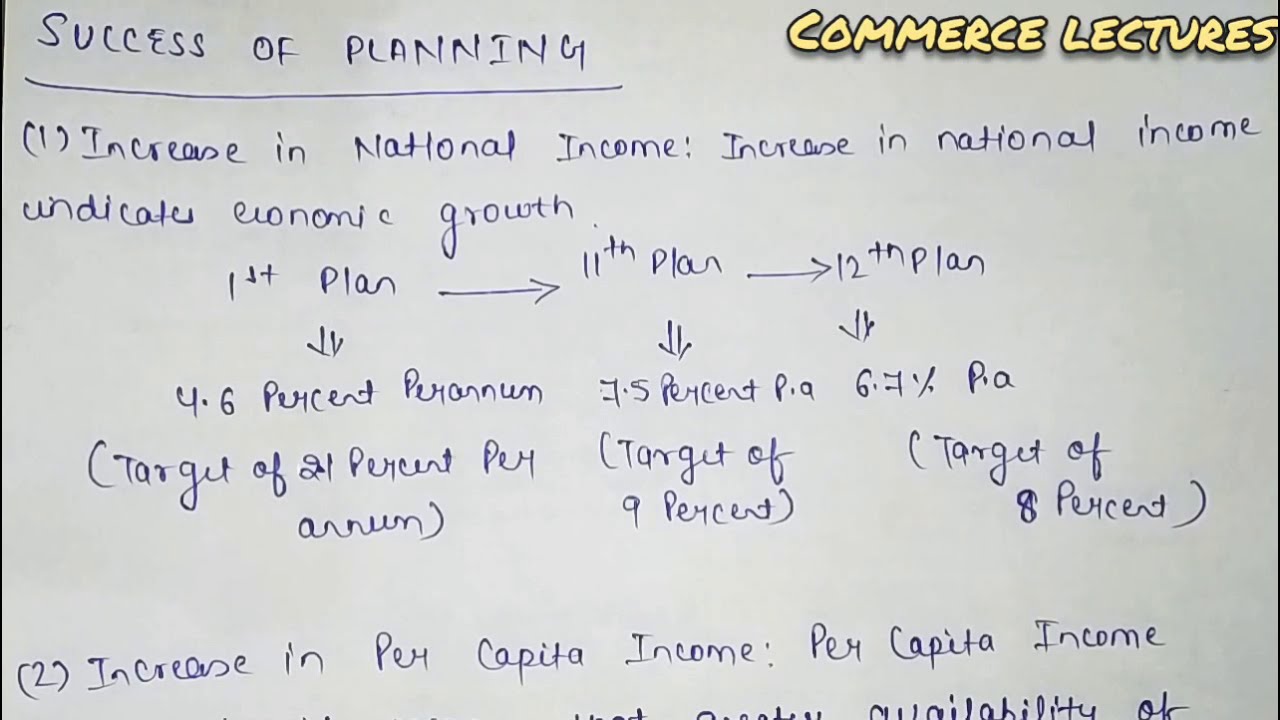 SUCCESS OF PLANNING
COMMERCE LECTURES
(1) Increase in National Income: Increase in national income
indicates economic growth.
1st Plan → 11th Plan → 12th Plan
⇓ ⇓ ⇓
4.6 Percent Perannum 7.5 Percent P.a 6.7% P.a
(Target of Percent Per (Target of (Target of
annum) 9 Percent) 8 Percent)
(2) Increase in Per Capita Income: Per Capita Income
that greater availability of